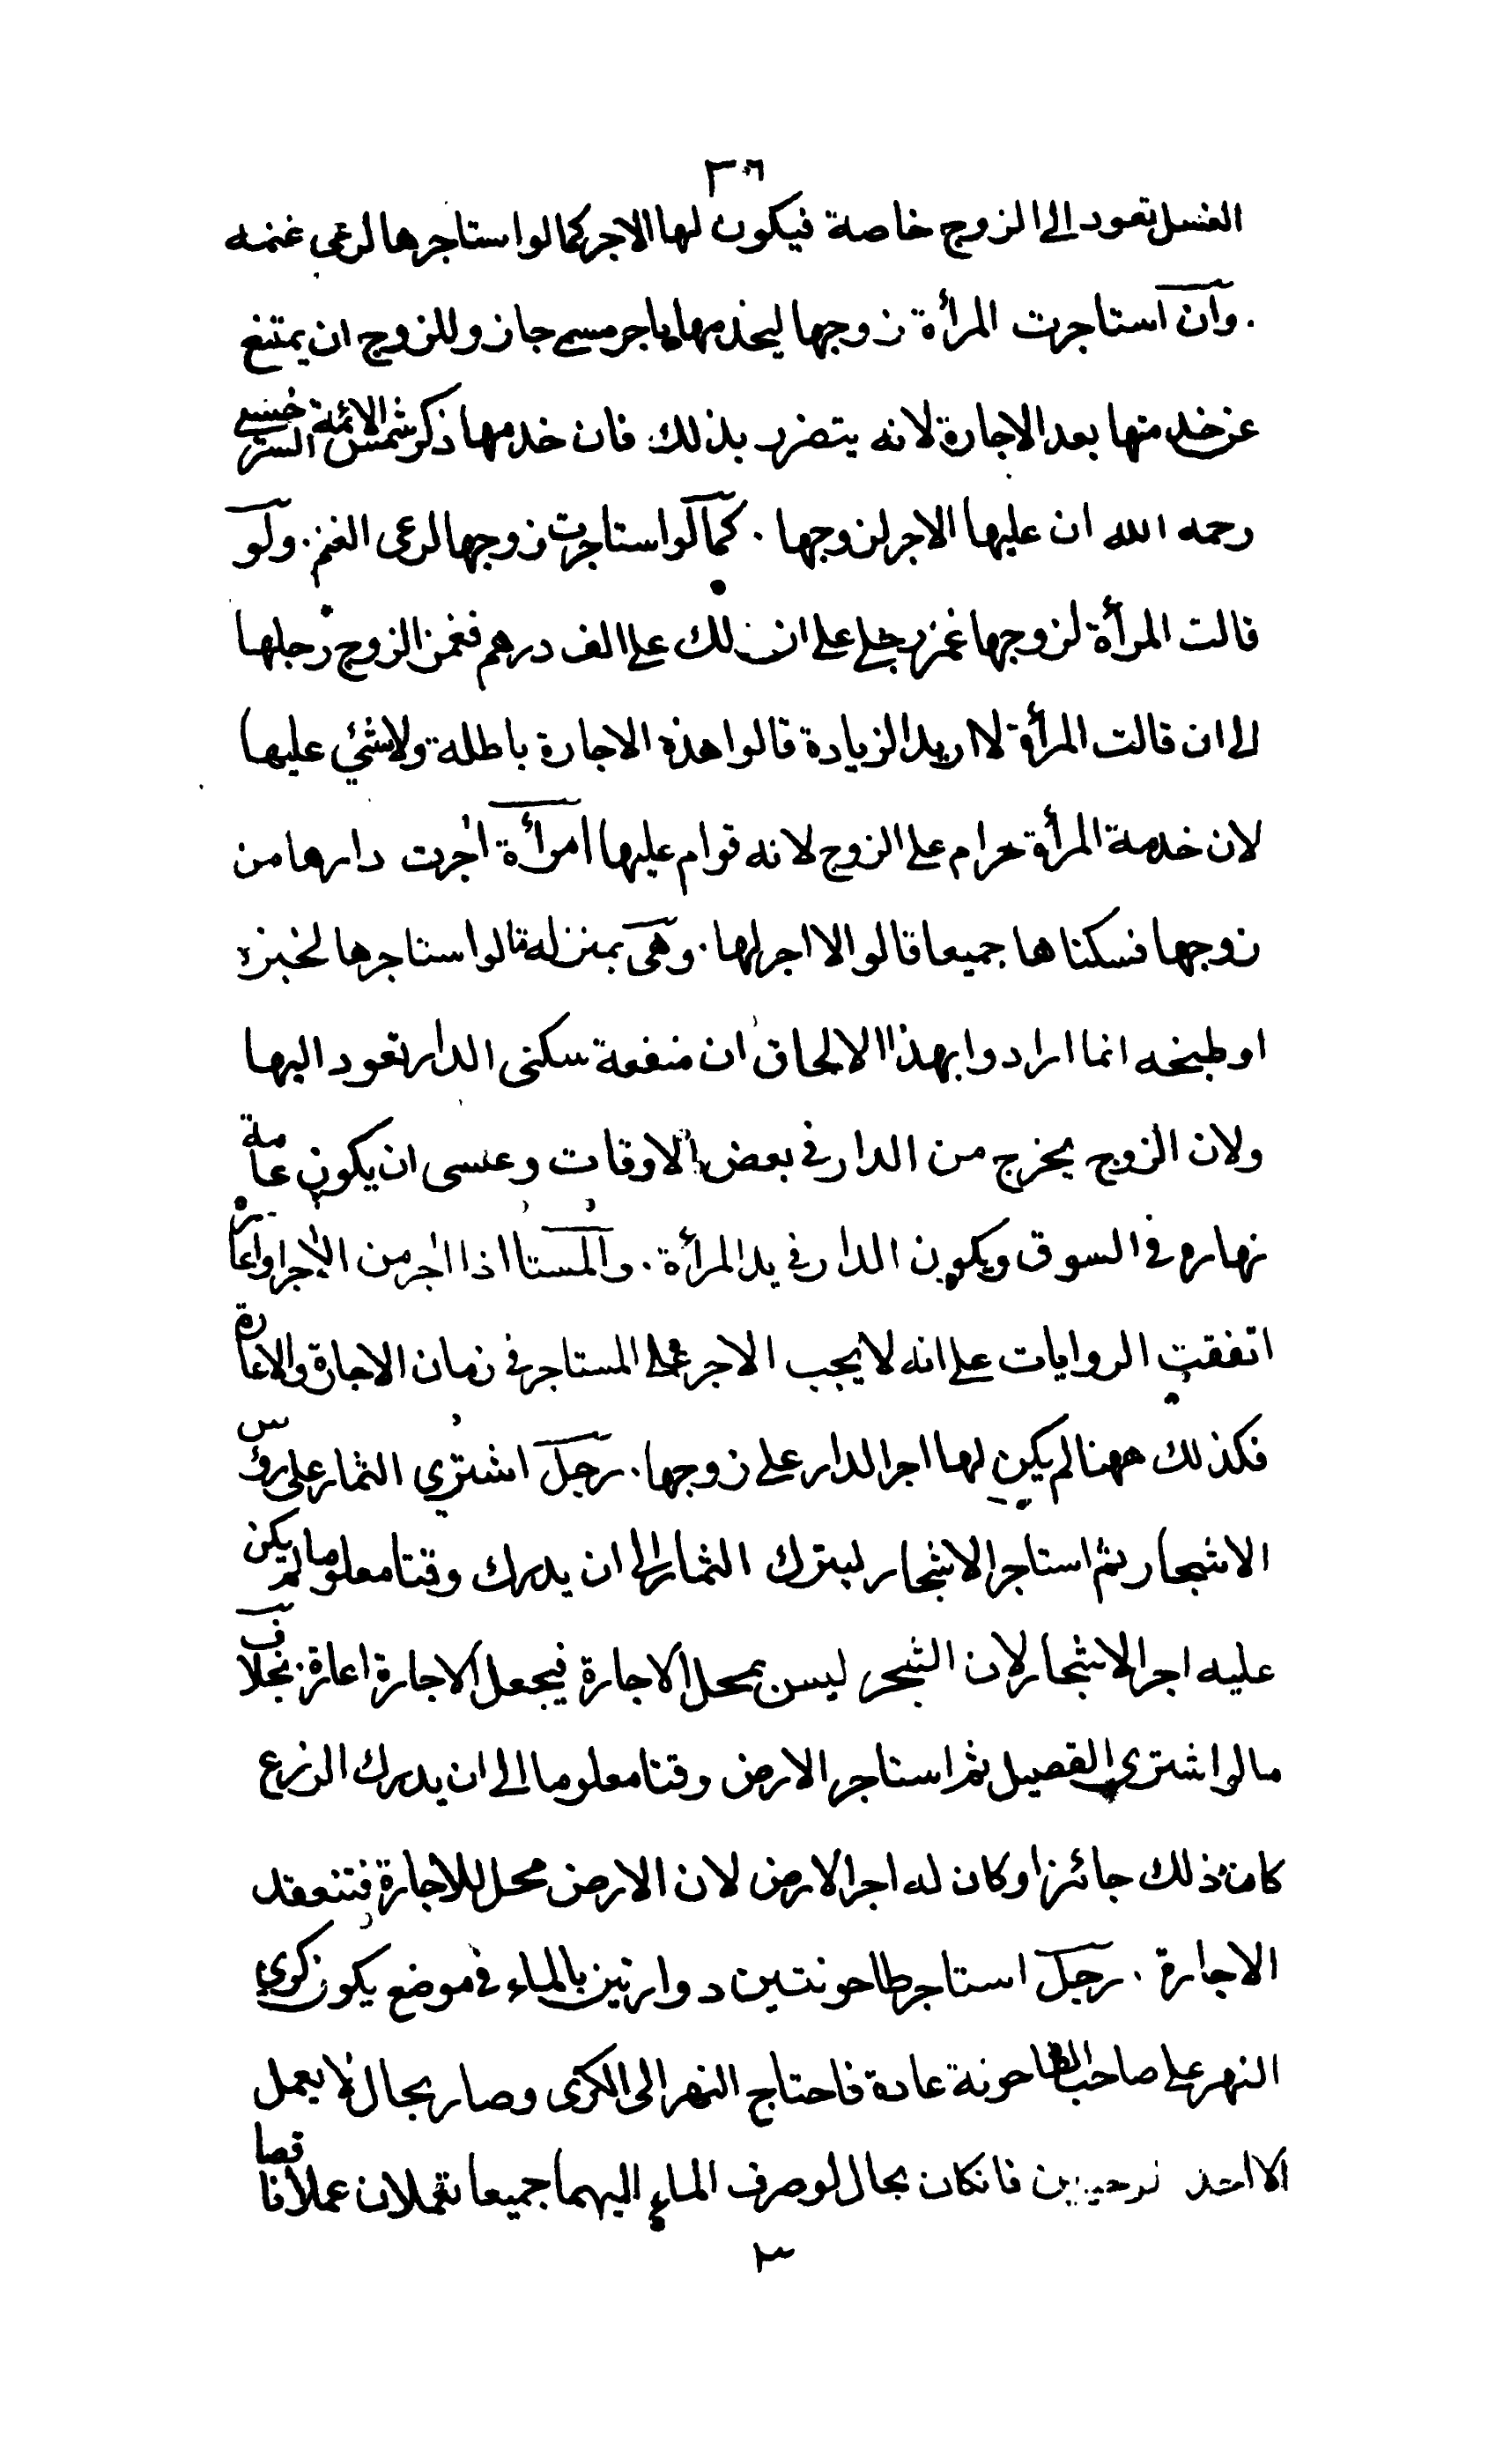 ٣٦
الغسل تعود الى الزوج خاصة فيكون لها الاجر كما لو استاجرها لرعى غنمه
. وان استاجرت المرأة زوجها ليخدمها باجر مسمى جاز وللزوج ان يمتنع
عن خدمتها بعد الاجارة لانه يتضرر بذلك فان خدمها ذكر شمس الائمة السرخسي
رحمه الله ان عليها الاجر لزوجها . كما لو استاجرت زوجها لرعى الغنم . ولو
قالت المرأة لزوجها غمز رجلي على ان لك على الف درهم فغمز الزوج رجلها
الى ان قالت المرأة لا اريد الزيادة قالوا هذه الاجارة باطلة ولا شئ عليها
لان خدمة المرأة حرام على الزوج لانه قوام عليها امرأة اجرت دارها من
زوجها فسكناها جميعا قالوا لا اجر لها . وهى بمنزلة ما لو استاجرها لخبزه
او طبخه انما ارادوا بهذا الالحاق ان منفعة سكنى الدار تعود اليها
ولان الزوج يخرج من الدار في بعض الاوقات وعسى ان يكون عامة
نهاره في السوق ويكون الدار في يد المرأة . والمستا اذا اجر من الاجر او اعاره
اتفقت الروايات على انه لا يجب الاجر على المستاجر في زمان الاجارة والاعارة
فكذلك ههنا لم يكن لها اجر الدار على زوجها . رجل اشترى الثمار على رؤس
الاشجار ثم استاجر الاشجار ليترك الثمار الى ان يدرك وقتا معلوما لم يكن
عليه اجر الاشجار لان الشجر ليس بمحل الاجارة فيجعل الاجارة اعارة . بخلاف
ما لو اشترى القصيل ثم استاجر الارض وقتا معلوما الى ان يدرك الزرع
كان ذلك جائزا وكان له اجر الارض لان الارض محل للاجارة فتنعقد
الاجارة . رجل استاجر طاحونتين دوارتين بالماء في موضع يكون كرى
النهر على صاحب الطاحونة عادة فاحتاج النهر الى الكرى وصار بحال لا يعمل
الا احد فانكان بحال لو صرف الماء اليهما جميعا تعملان عملا ناقصا